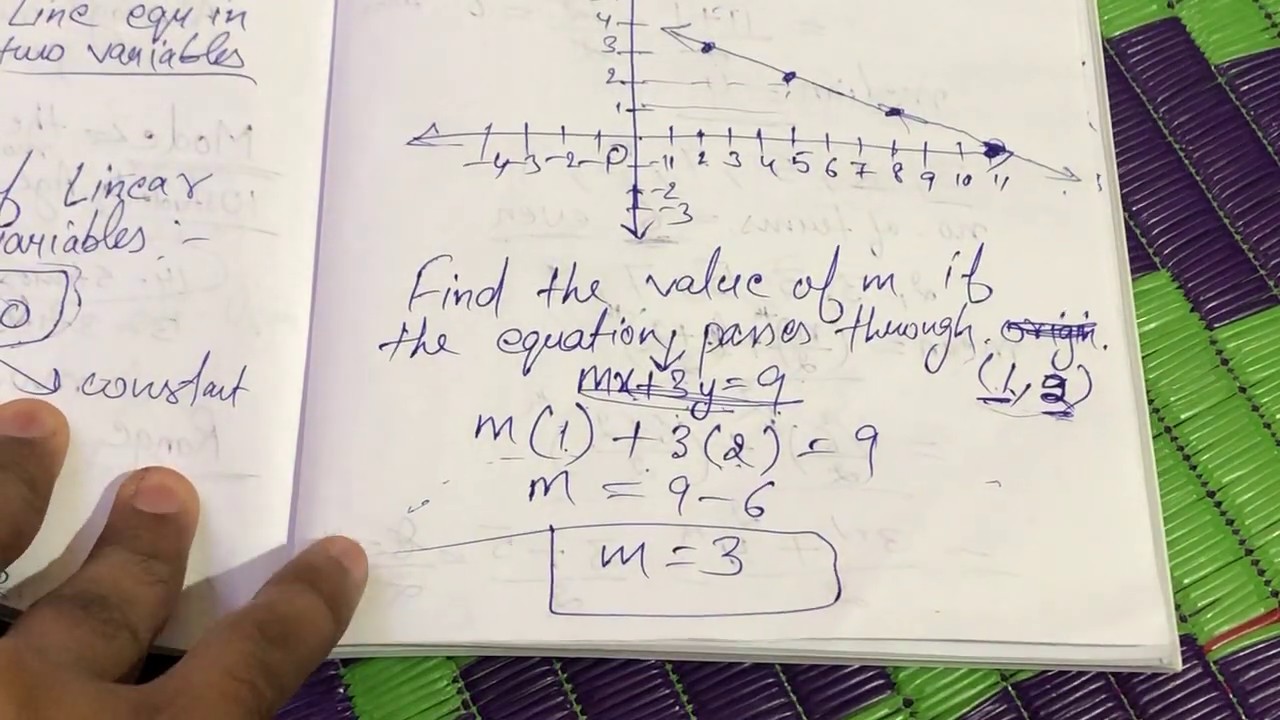 Line equ in
two variables
of Linear
variables :-
0
constant
4
3
2
1
-4 -3 -2 -1 0 1 2 3 4 5 6 7 8 9 10 11
-1
-2
-3
Find the value of m if
the equation passes through origin.
mx+3y=9 (1,2)
m(1) + 3(2) = 9
m = 9-6
m = 3